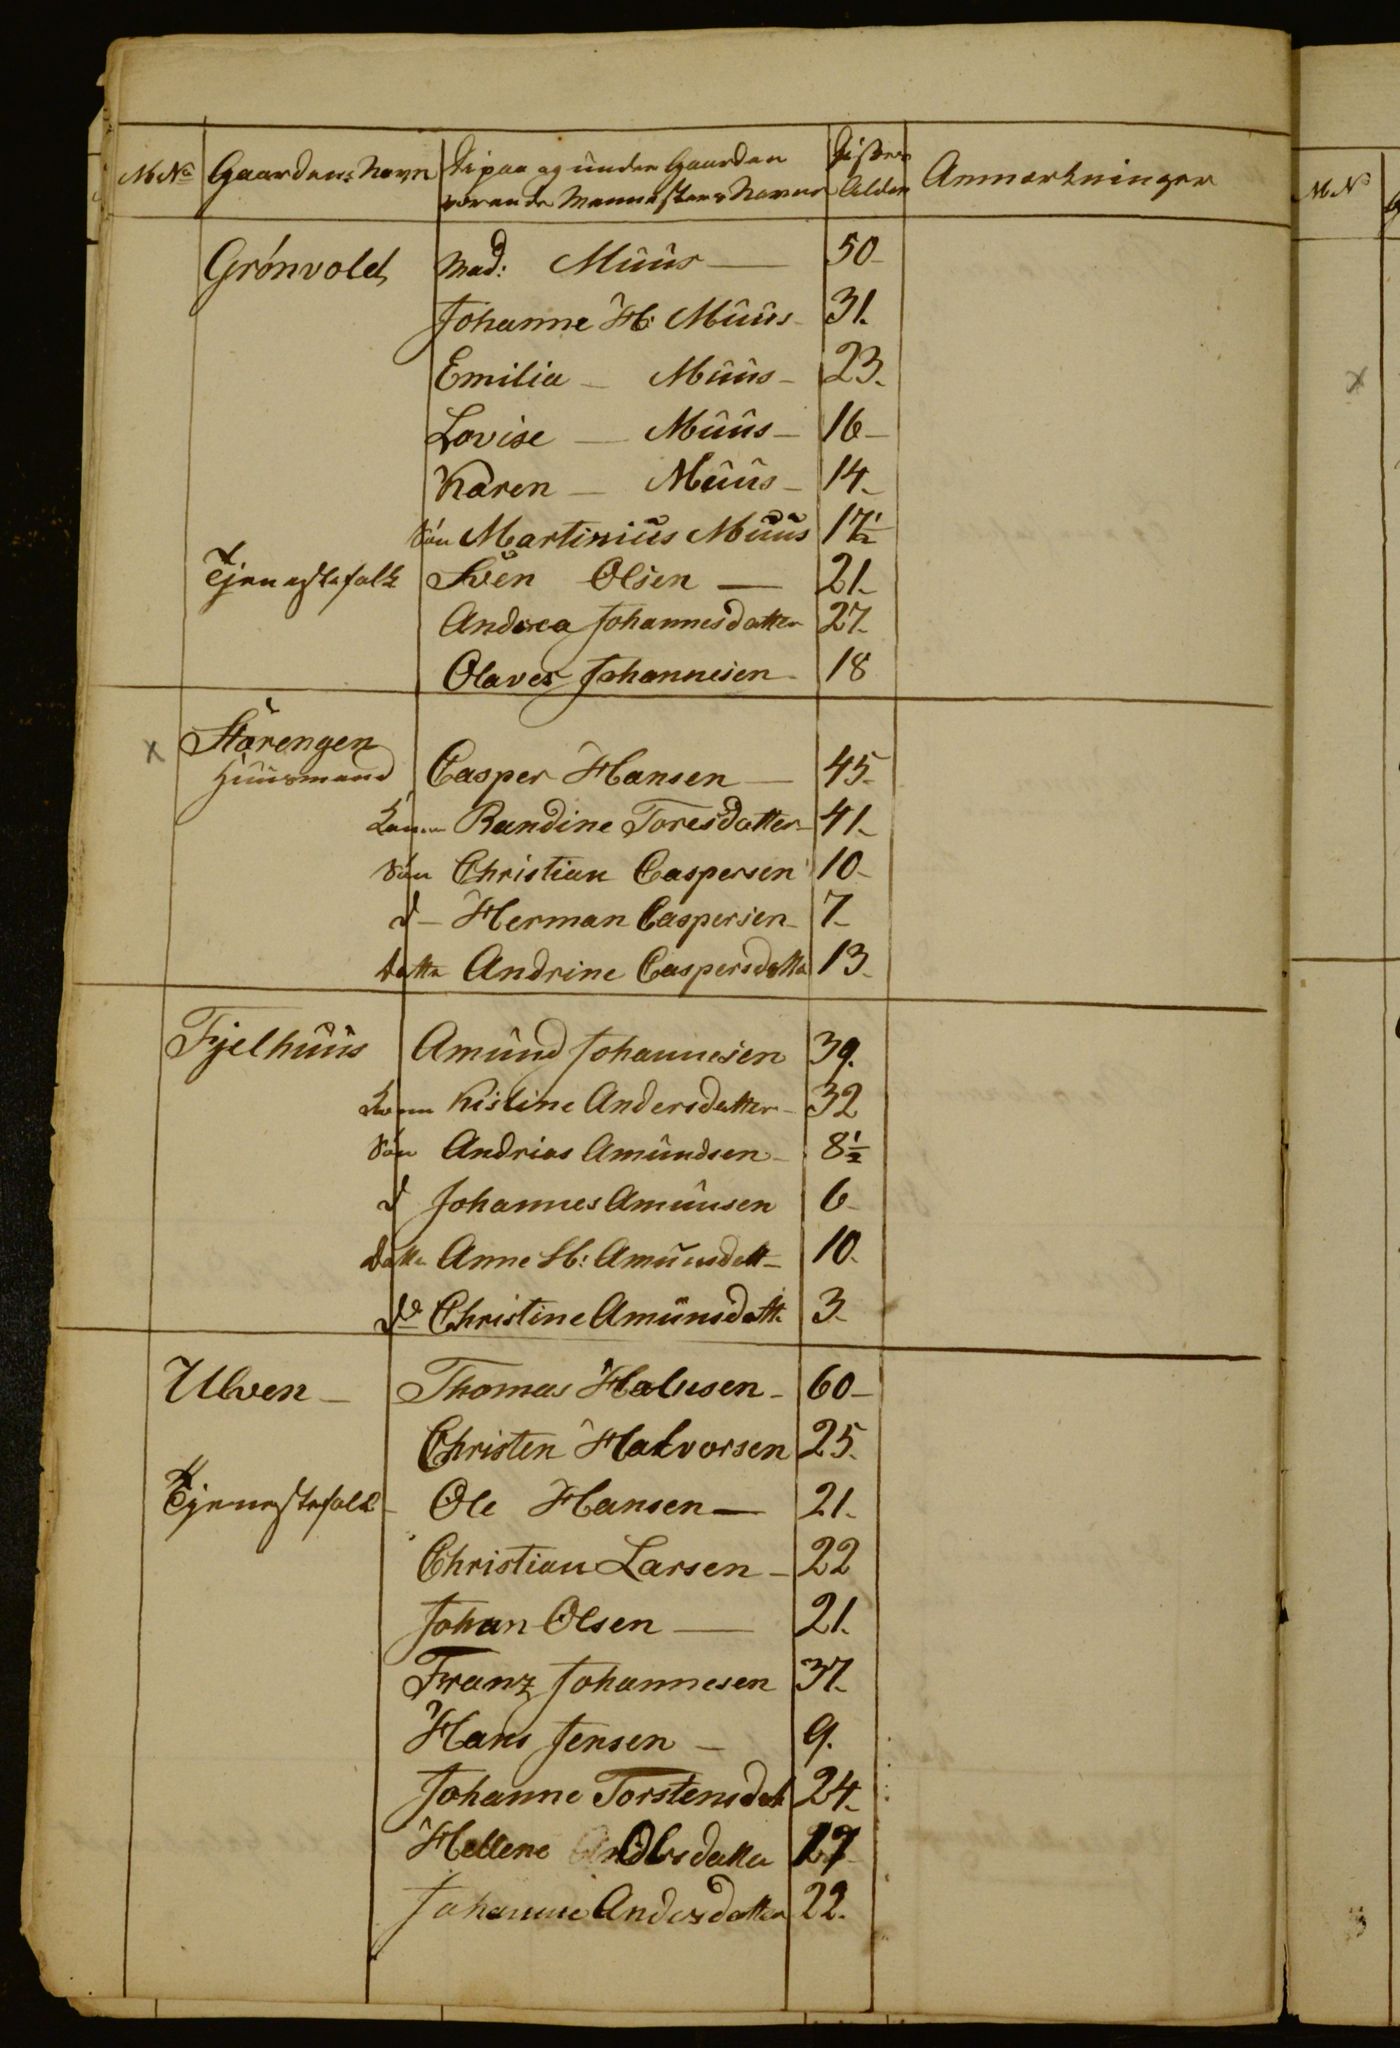 M No Gaardens Navn De paa og under Gaarden værende Menneskers Navne Disses Alder Anmærkninger
Grönvold Mad: Muus 50
Johanne H: Muus 31.
Emilia Muus 23.
Lovise Muus 16
Karen Muus 14
Sön Martinius Muus 17 1/2
Tjenestefolk Sven Olsen 21.
Andrea Johannesdatter 27.
Olaves Johannesen 18
x Störengen
Huusmand Casper Hansen 45.
Kone Randine Toresdatter 41.
Sön Christian Caspersen 10
d Herman Caspersen 7
Datter Andrine Caspersdatter 13.
Fjelhuus Amund Johannesen 39.
Kone Kistine Andersdatter 32
Sön Andrias Amundsen 8 1/2
d Johannes Amunsen 6
Datter Anne H: Amunsdatt 10.
do Christine Amunsdatt 3.
Ulven Thomas Halvsen 60
Christen Halvorsen 25.
Tjenestefolk Ole Hansen 21.
Christian Larsen 22
Johan Olsen 21.
Franz Johannesen 37.
Hans Jensen 9.
Johanne Torstensdat 24.
Hellene Olsdatter 17
Johanne Andersdatter 22.
M N
x